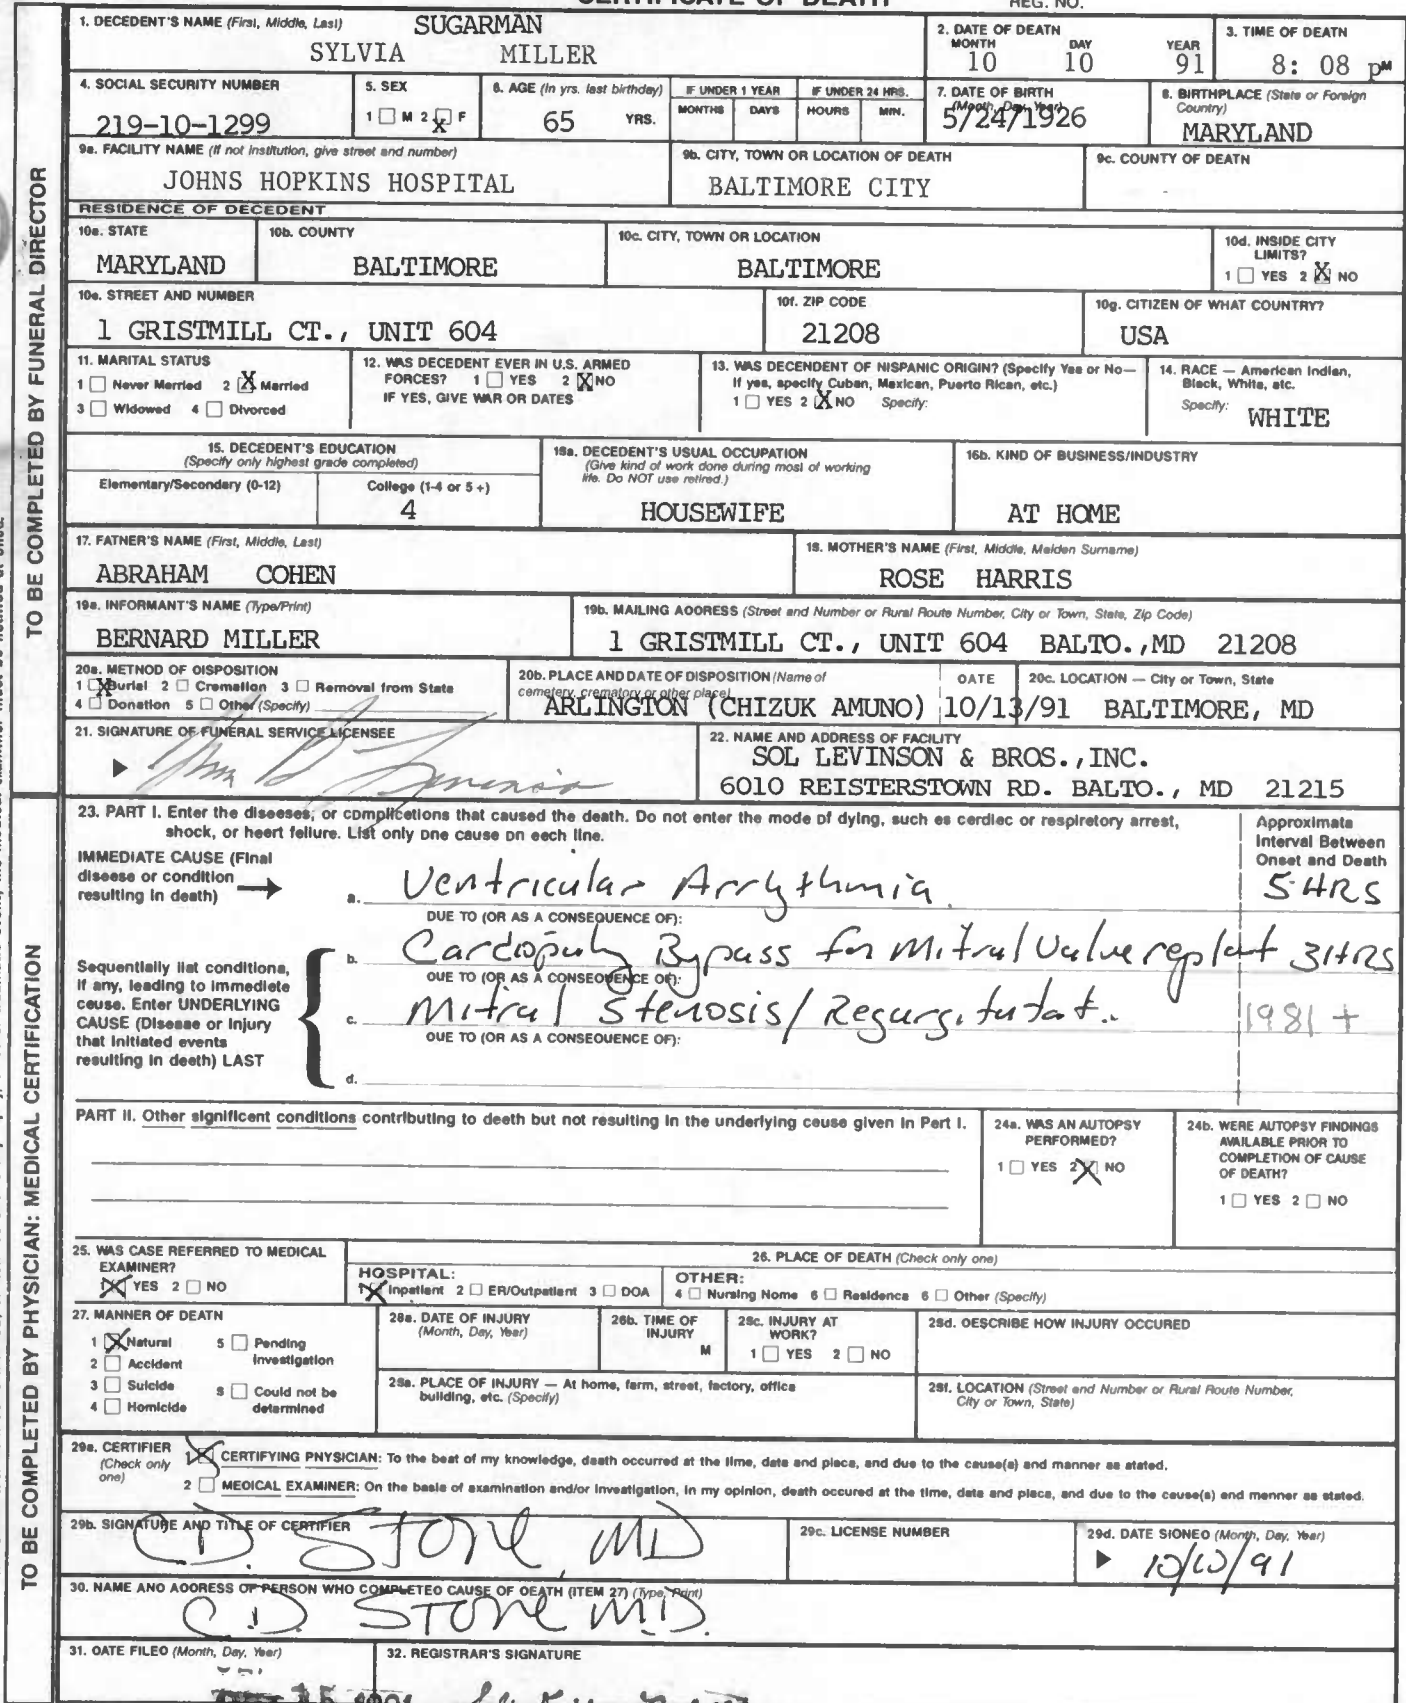 CERTIFICATE OF DEATH REG. NO.
1. DECEDENT'S NAME (First, Middle, Last) SUGARMAN
SYLVIA MILLER
2. DATE OF DEATH
MONTH DAY YEAR
10 10 91
3. TIME OF DEATH
8: 08 pM
4. SOCIAL SECURITY NUMBER
219-10-1299
5. SEX
1 M 2 X F
6. AGE (In yrs. last birthday)
65 YRS.
IF UNDER 1 YEAR
MONTHS DAYS
IF UNDER 24 HRS.
HOURS MIN.
7. DATE OF BIRTH
(Month, Day, Year)
5/24/1926
8. BIRTHPLACE (State or Foreign
Country)
MARYLAND
9a. FACILITY NAME (If not institution, give street and number)
JOHNS HOPKINS HOSPITAL
9b. CITY, TOWN OR LOCATION OF DEATH
BALTIMORE CITY
9c. COUNTY OF DEATH
TO BE COMPLETED BY FUNERAL DIRECTOR
RESIDENCE OF DECEDENT
10a. STATE
MARYLAND
10b. COUNTY
BALTIMORE
10c. CITY, TOWN OR LOCATION
BALTIMORE
10d. INSIDE CITY
LIMITS?
1 YES 2 X NO
10e. STREET AND NUMBER
1 GRISTMILL CT., UNIT 604
10f. ZIP CODE
21208
10g. CITIZEN OF WHAT COUNTRY?
USA
11. MARITAL STATUS
1 Never Married 2 X Married
3 Widowed 4 Divorced
12. WAS DECEDENT EVER IN U.S. ARMED
FORCES? 1 YES 2 X NO
IF YES, GIVE WAR OR DATES
13. WAS DECENDENT OF NISPANIC ORIGIN? (Specify Yes or No—
If yes, specify Cuban, Mexican, Puerto Rican, etc.)
1 YES 2 X NO Specify:
14. RACE — American Indian,
Black, White, etc.
Specify: WHITE
15. DECEDENT'S EDUCATION
(Specify only highest grade completed)
Elementary/Secondary (0-12) College (1-4 or 5+)
4
16a. DECEDENT'S USUAL OCCUPATION
(Give kind of work done during most of working
life. Do NOT use retired.)
HOUSEWIFE
16b. KIND OF BUSINESS/INDUSTRY
AT HOME
17. FATHER'S NAME (First, Middle, Last)
ABRAHAM COHEN
18. MOTHER'S NAME (First, Middle, Maiden Surname)
ROSE HARRIS
19a. INFORMANT'S NAME (Type/Print)
BERNARD MILLER
19b. MAILING ADDRESS (Street and Number or Rural Route Number, City or Town, State, Zip Code)
1 GRISTMILL CT., UNIT 604 BALTO.,MD 21208
20a. METNOD OF DISPOSITION
1 X Burial 2 Cremation 3 Removal from State
4 Donation 5 Other (Specify)
20b. PLACE AND DATE OF DISPOSITION (Name of
cemetery, crematory or other place)
ARLINGTON (CHIZUK AMUNO)
DATE
10/13/91
20c. LOCATION — City or Town, State
BALTIMORE, MD
21. SIGNATURE OF FUNERAL SERVICE LICENSEE
22. NAME AND ADDRESS OF FACILITY
SOL LEVINSON & BROS.,INC.
6010 REISTERSTOWN RD. BALTO., MD 21215
TO BE COMPLETED BY PHYSICIAN: MEDICAL CERTIFICATION
23. PART I. Enter the diseases, or complications that caused the death. Do not enter the mode of dying, such as cardiac or respiratory arrest,
shock, or heart failure. List only one cause on each line.
Approximate
Interval Between
Onset and Death
IMMEDIATE CAUSE (Final
disease or condition
resulting in death)
a. Ventricular Arrythmia 5 HRS
DUE TO (OR AS A CONSEQUENCE OF):
b. Cardiopulm Bypass for Mitral Valve replat 3HRS
DUE TO (OR AS A CONSEQUENCE OF):
Sequentially list conditions,
if any, leading to immediate
cause. Enter UNDERLYING
CAUSE (Disease or Injury
that initiated events
resulting in death) LAST
c. Mitral Stenosis/Regurgitutat.. 1981 +
DUE TO (OR AS A CONSEQUENCE OF):
d.
PART II. Other significant conditions contributing to death but not resulting in the underlying cause given in Part I.
24a. WAS AN AUTOPSY
PERFORMED?
1 YES 2 X NO
24b. WERE AUTOPSY FINDINGS
AVAILABLE PRIOR TO
COMPLETION OF CAUSE
OF DEATH?
1 YES 2 NO
25. WAS CASE REFERRED TO MEDICAL
EXAMINER?
1 X YES 2 NO
26. PLACE OF DEATH (Check only one)
HOSPITAL:
1 X Inpatient 2 ER/Outpatient 3 DOA
OTHER:
4 Nursing Nome 6 Residence 6 Other (Specify)
27. MANNER OF DEATH
1 X Natural 5 Pending
Investigation
2 Accident
3 Suicide 8 Could not be
determined
4 Homicide
28a. DATE OF INJURY
(Month, Day, Year)
28b. TIME OF
INJURY
M
28c. INJURY AT
WORK?
1 YES 2 NO
28d. DESCRIBE HOW INJURY OCCURED
28a. PLACE OF INJURY — At home, farm, street, factory, office
building, etc. (Specify)
28f. LOCATION (Street and Number or Rural Route Number,
City or Town, State)
29a. CERTIFIER
(Check only
one)
1 X CERTIFYING PNYSICIAN: To the best of my knowledge, death occurred at the time, date and place, and due to the cause(s) and manner as stated.
2 MEDICAL EXAMINER: On the basis of examination and/or investigation, in my opinion, death occured at the time, date and place, and due to the cause(s) and manner as stated.
29b. SIGNATURE AND TITLE OF CERTIFIER
C.D. STONE, MD
29c. LICENSE NUMBER
29d. DATE SIGNED (Month, Day, Year)
10/10/91
30. NAME AND ADDRESS OF PERSON WHO COMPLETED CAUSE OF DEATH (ITEM 27) (Type, Print)
C.D. STONE M.D.
31. DATE FILED (Month, Day, Year)
32. REGISTRAR'S SIGNATURE